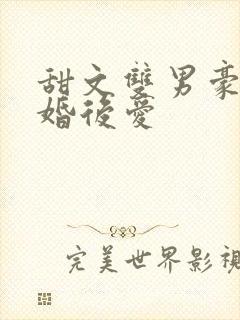 甜文雙男豪
婚後愛
完美世界影視